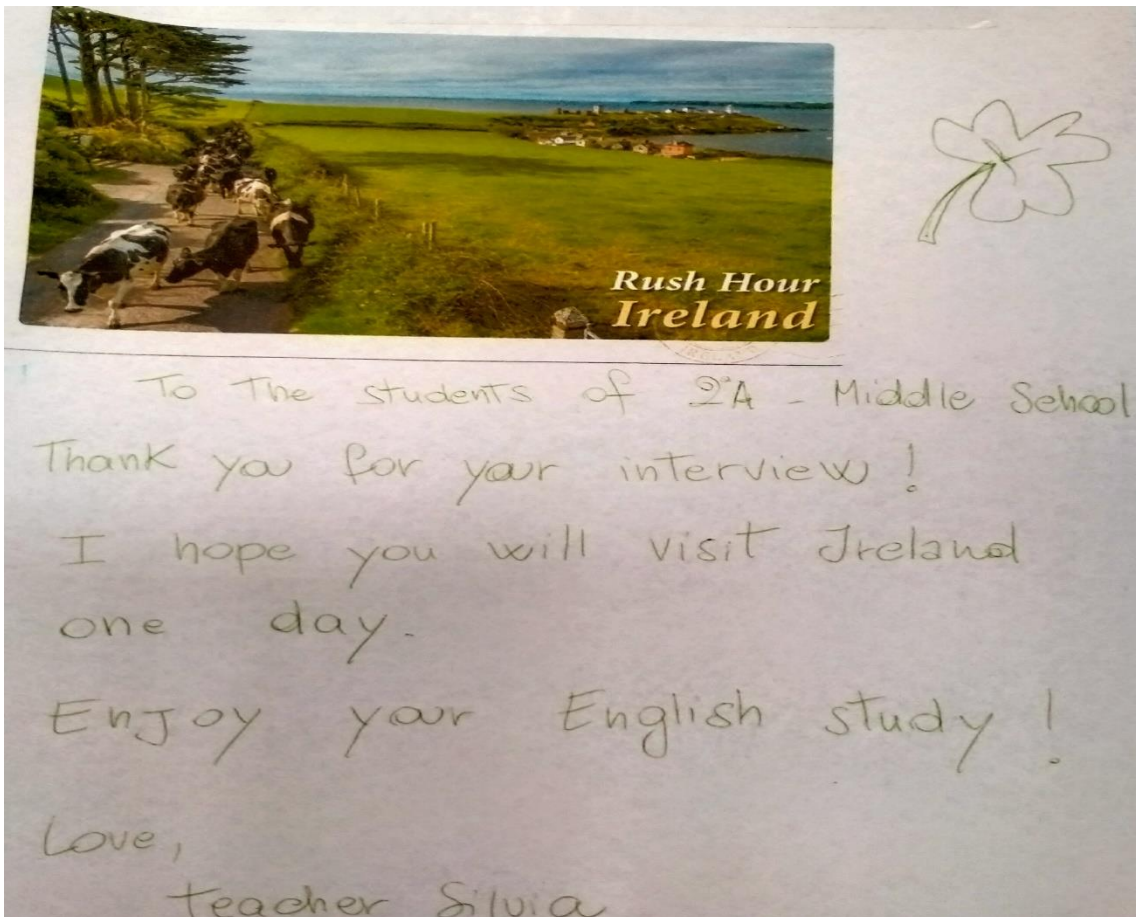 Rush Hour
Ireland
To The students of 2ªA - Middle School
Thank you for your interview!
I hope you will visit Ireland
one day.
Enjoy your English study!
Love,
teacher Silvia